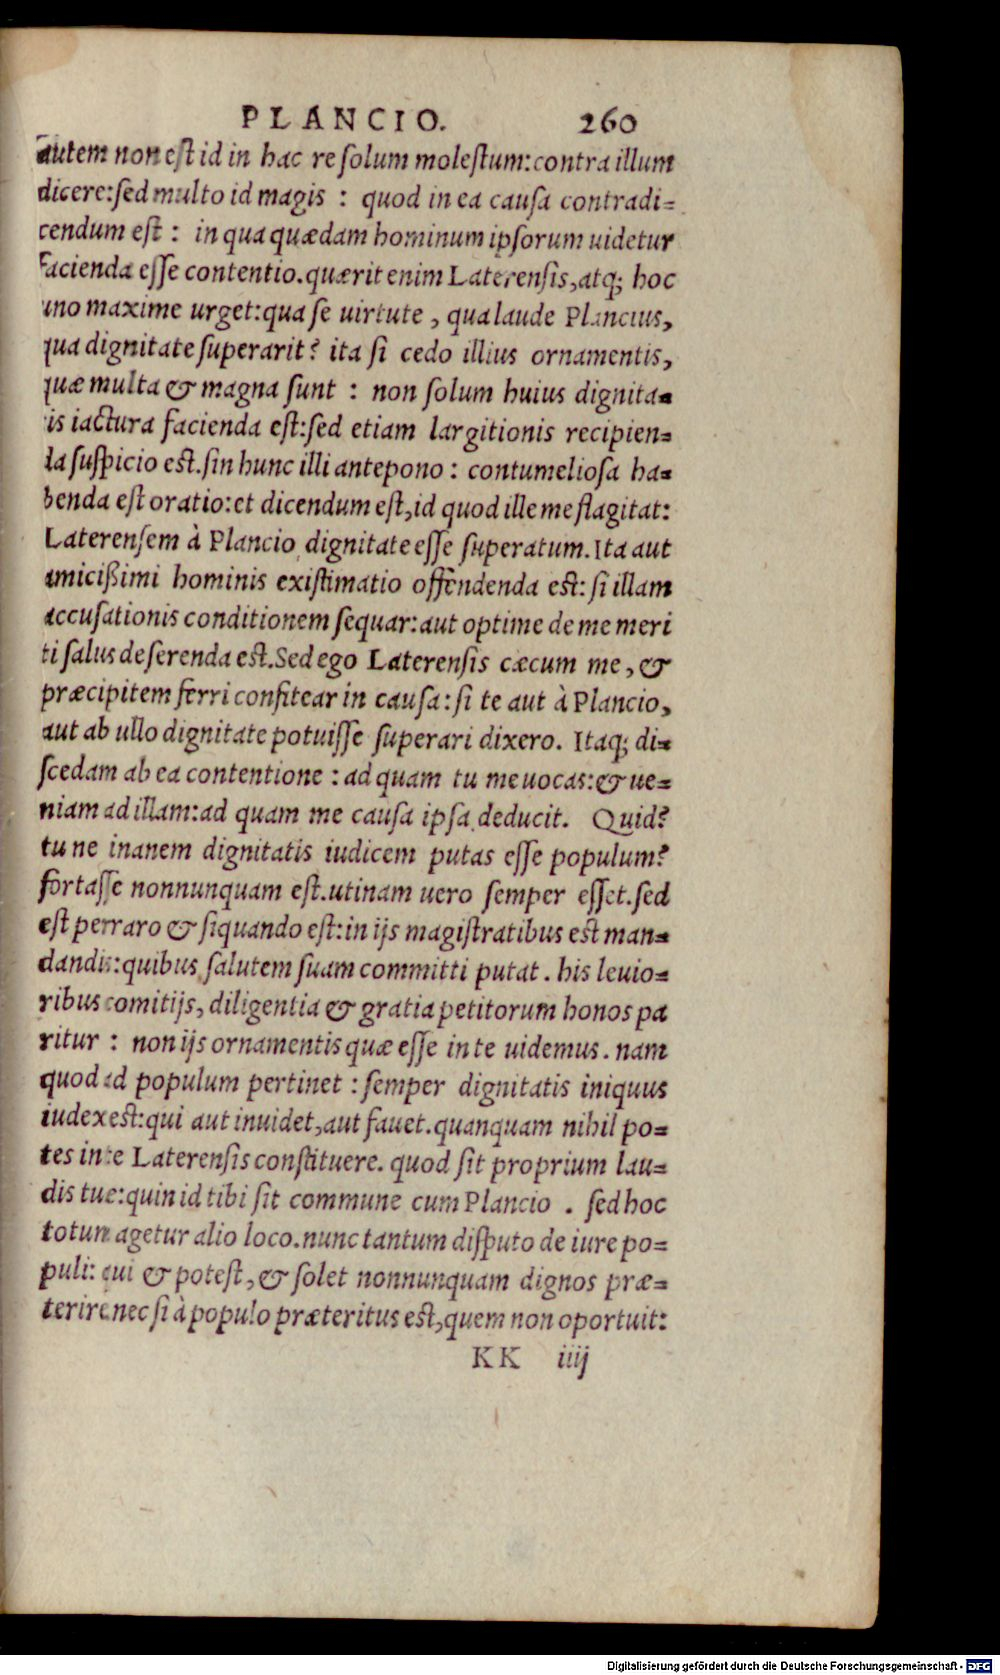 PLANCIO. 260
autem non est id in hac re solum molestum:contra illum
dicere:sed multo id magis : quod in ea causa contradi=
cendum est : in qua quædam hominum ipsorum uidetur
facienda esse contentio.quærit enim Laterensis,atq; hoc
uno maxime urget:qua se uirtute , qua laude Plancius,
qua dignitate superarit? ita si cedo illius ornamentis,
quæ multa & magna sunt : non solum huius dignita=
is iactura facienda est:sed etiam largitionis recipien=
da suspicio est.sin hunc illi antepono : contumeliosa ha=
benda est oratio:et dicendum est,id quod ille me flagitat:
Laterensem à Plancio dignitate esse superatum.Ita aut
amicißimi hominis existimatio offendenda est: si illam
accusationis conditionem sequar:aut optime de me meri
ti salus deserenda est.Sed ego Laterensis cæcum me , &
præcipitem ferri confitear in causa:si te aut à Plancio,
aut ab ullo dignitate potuisse superari dixero. Itaq; di=
scedam ab ea contentione : ad quam tu me uocas:& ue=
niam ad illam:ad quam me causa ipsa deducit. Quid?
tu ne inanem dignitatis iudicem putas esse populum?
fortasse nonnunquam est.utinam uero semper esset.sed
est perraro & siquando est:in ijs magistratibus est man=
dandis:quibus salutem suam committi putat . his leuio=
ribus comitijs, diligentia & gratia petitorum honos pa
ritur : non ijs ornamentis quæ esse in te uidemus . nam
quod ad populum pertinet : semper dignitatis iniquus
iudex est:qui aut inuidet,aut fauet.quanquam nihil po=
tes in te Laterensis constituere. quod sit proprium lau=
dis tue:quin id tibi sit commune cum Plancio . sed hoc
totum agetur alio loco.nunc tantum disputo de iure po=
puli: qui & potest,& solet nonnunquam dignos præ=
terire.nec si à populo præteritus est,quem non oportuit:
KK iiij
Digitalisierung gefördert durch die Deutsche Forschungsgemeinschaft - DFG